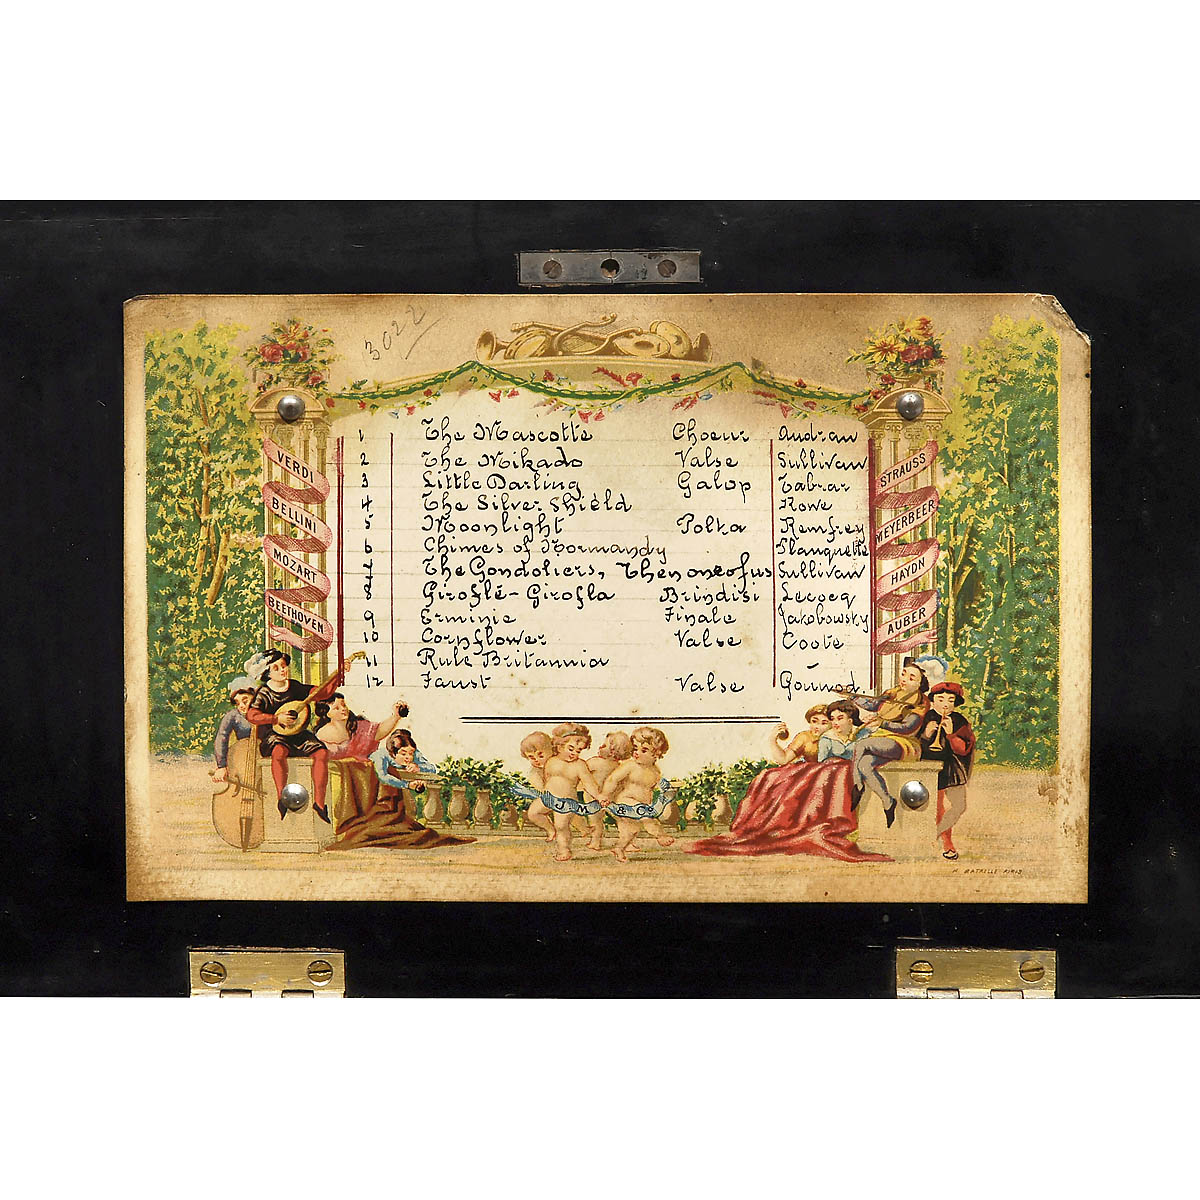 3022
1 The Mascotte Choeur Audran
2 The Mikado Valse Sullivan
3 Little Darling Galop Tabrar
4 The Silver Shield Rowe
5 Moonlight Polka Remfrey
6 Chimes of Normandy Planquette
7 The Gondoliers, Then one of us Sullivan
8 Giroflé-Girofla Brindisi Lecocq
9 Erminie Finale Jakobowsky
10 Cornflower Valse Coote
11 Rule Britannia
12 Faust Valse Gounod.
VERDI
BELLINI
MOZART
BEETHOVEN
STRAUSS
MEYERBEER
HAYDN
AUBER
J.M. & Co